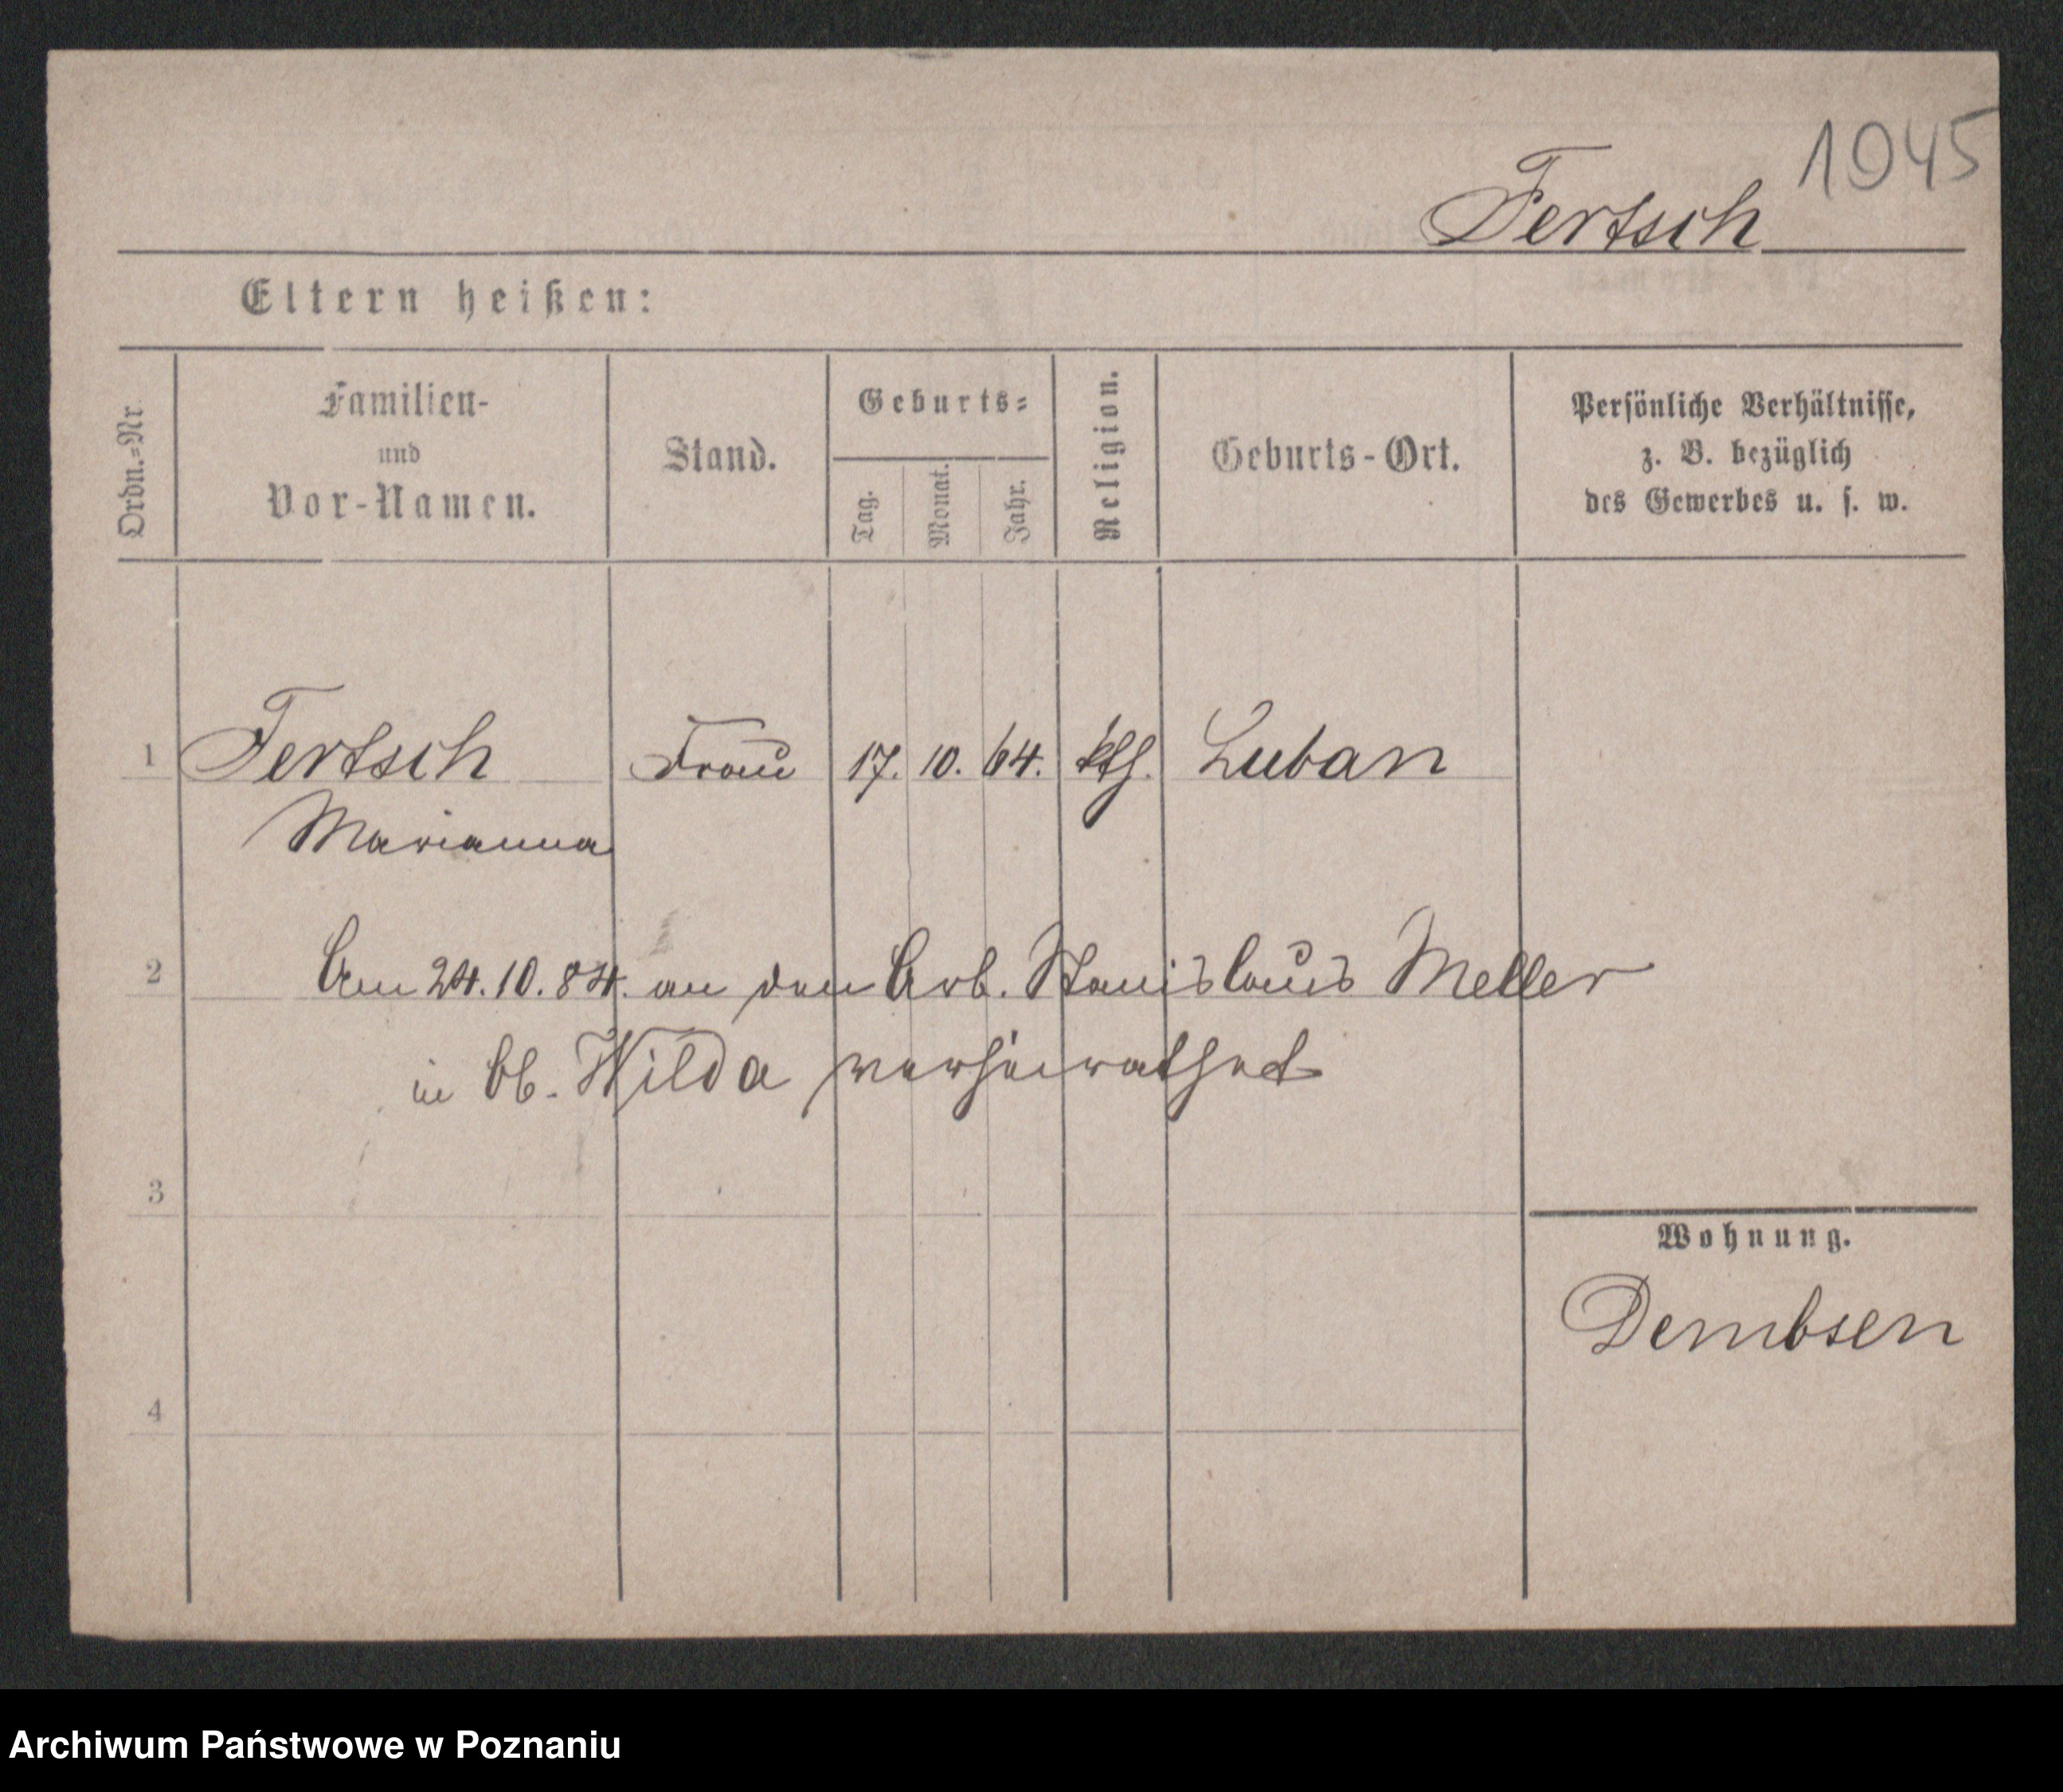 1045
Fertsch
Eltern heißen:
Ordn.-Nr.
Familien-
und
Vor-Namen.
Stand.
Geburts-
Tag.
Monat.
Jahr.
Religion.
Geburts-Ort.
Persönliche Verhältnisse,
z. B. bezüglich
des Gewerbes u. s. w.
1 Fertsch Frau 17. 10. 64. kth. Luban
Marianna
2 Am 24. 10. 84. an den Arb. Stanislaus Meller
in Ob. Wilda verheirathet
3
Wohnung.
Dembsen
4
Archiwum Państwowe w Poznaniu